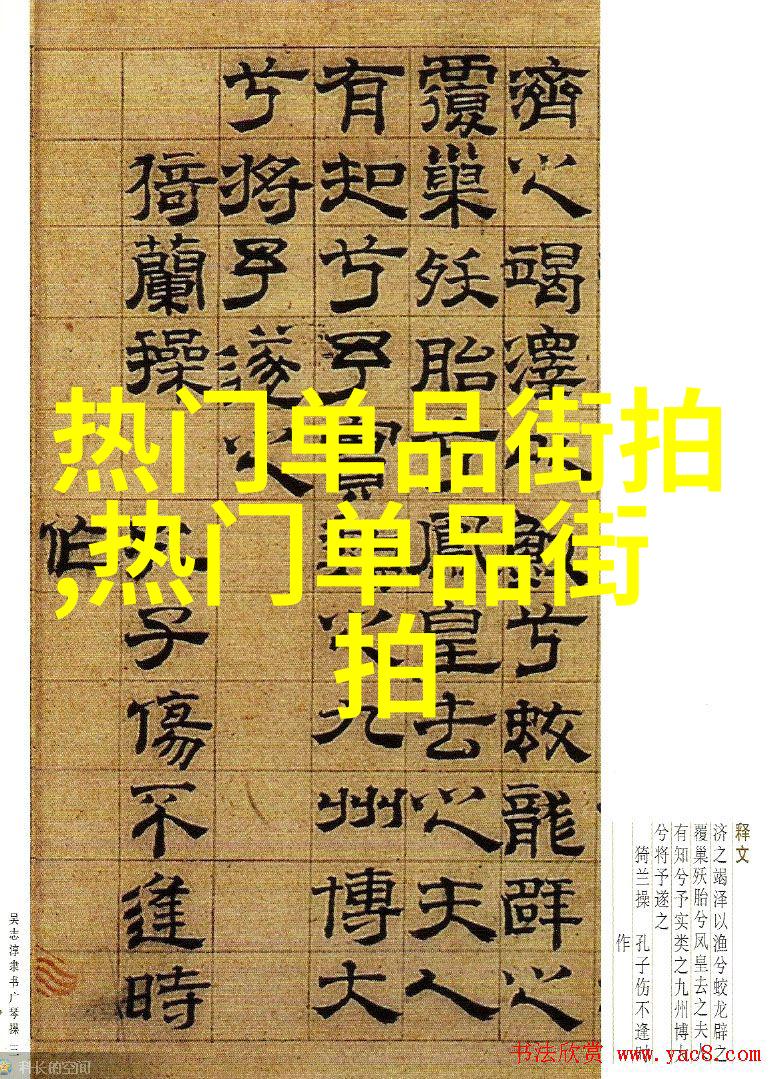 濟之竭澤以漁兮蛟龍辟之
覆巢殀胎兮鳳皇去之夫人
有知兮予實類之九州博大
兮將予遂之
猗蘭操 孔子傷不逢時
作
热门单品街拍
,热门单品街
拍
释文
济之竭泽以渔兮蛟龙辟之
覆巢殀胎兮凤皇去之夫
有知兮予实类之九州博
兮将予遂之
猗兰操 孔子伤不逢
作
吴志淳隶书广琴操 三
科长的空间
书法欣赏 www.yac8.com